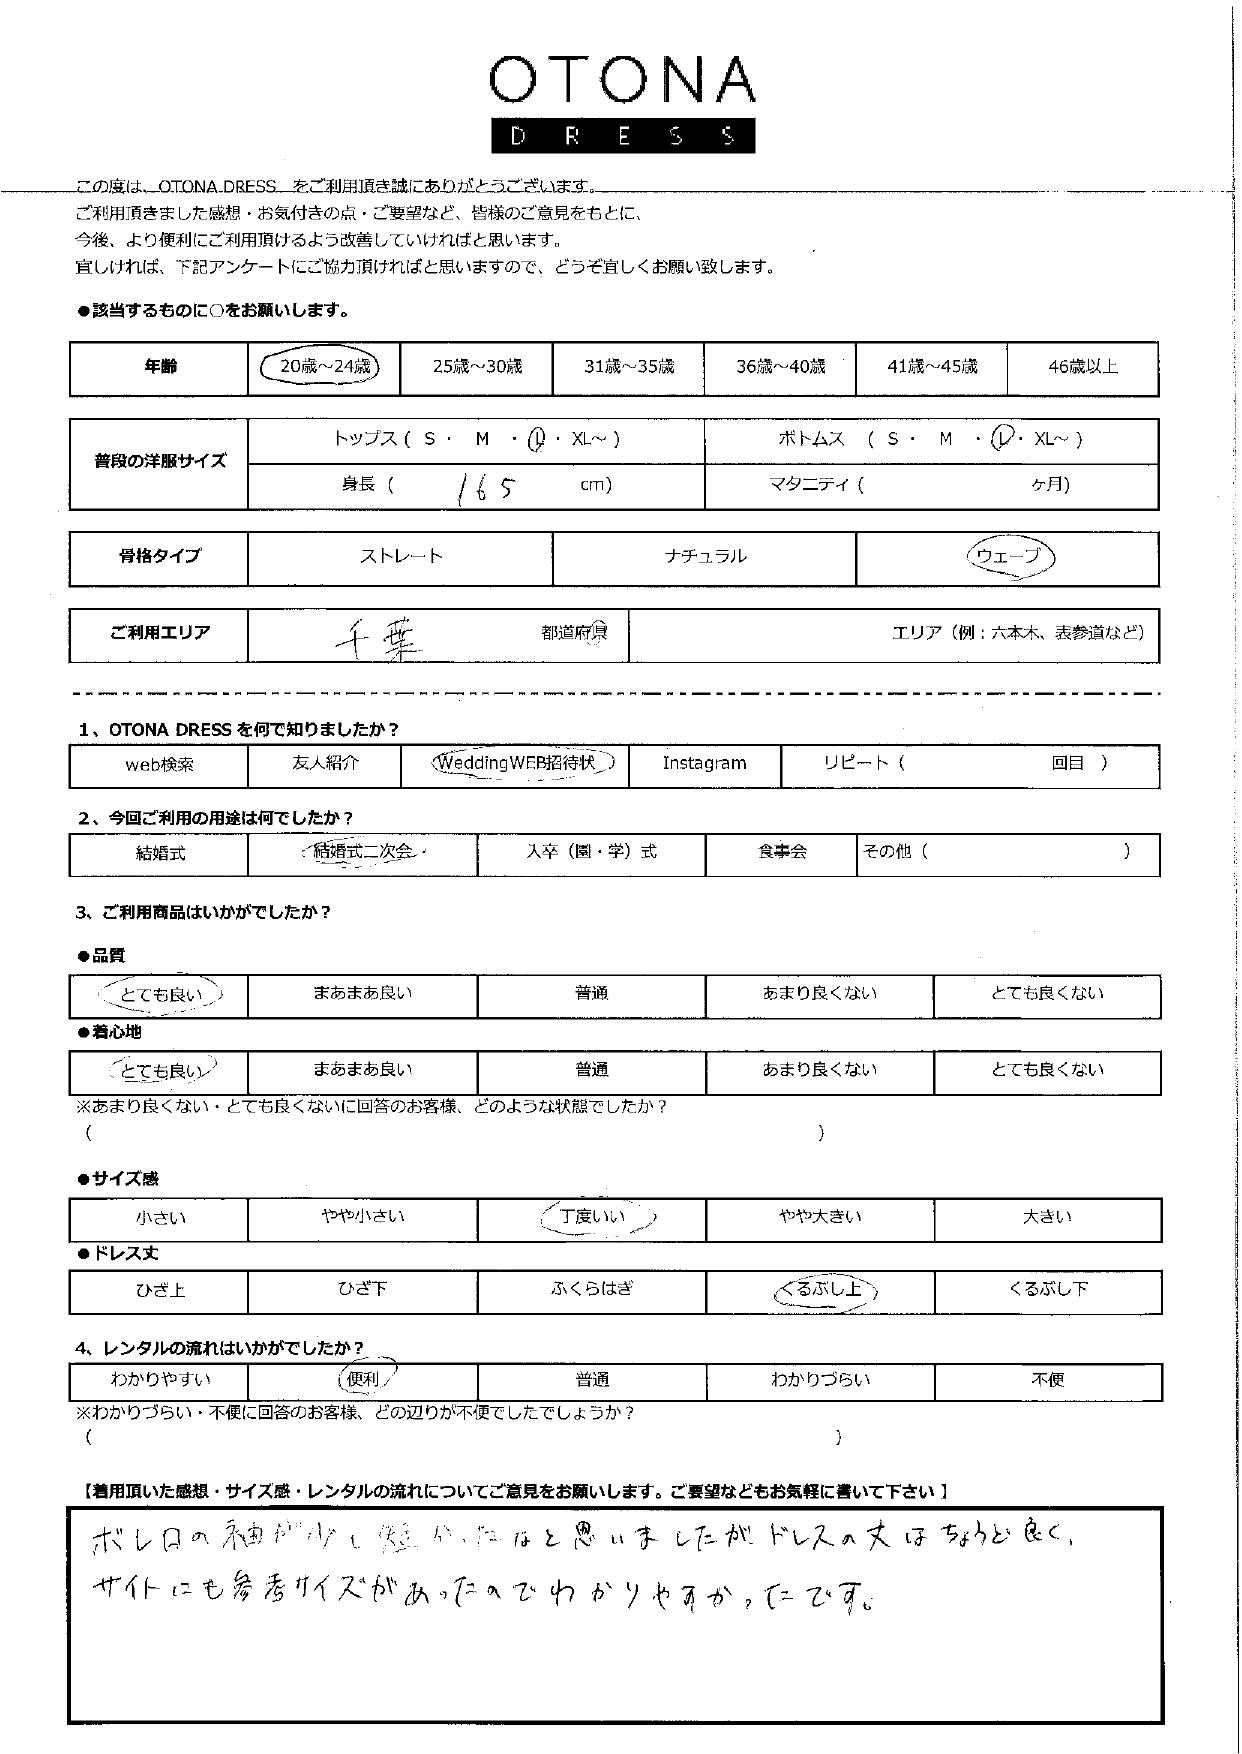 OTONA
DRESS
この度は、OTONA DRESS をご利用頂き誠にありがとうございます。
ご利用頂きました感想・お気付きの点・ご要望など、皆様のご意見をもとに、
今後、より便利にご利用頂けるよう改善していければと思います。
宜しければ、下記アンケートにご協力頂ければと思いますので、どうぞ宜しくお願い致します。
●該当するものに○をお願いします。
年齢 20歳～24歳 25歳～30歳 31歳～35歳 36歳～40歳 41歳～45歳 46歳以上
普段の洋服サイズ
トップス ( S ・ M ・ L ・ XL～ ) ボトムス ( S ・ M ・ L ・ XL～ )
身長 ( 165 cm) マタニティ ( ヶ月)
骨格タイプ ストレート ナチュラル ウェーブ
ご利用エリア 千葉 都道府県 エリア（例：六本木、表参道など）
1、OTONA DRESS を何で知りましたか？
web検索 友人紹介 WeddingWEB招待状 Instagram リピート ( 回目 )
2、今回ご利用の用途は何でしたか？
結婚式 結婚式二次会 入卒（園・学）式 食事会 その他 ( )
3、ご利用商品はいかがでしたか？
●品質
とても良い まあまあ良い 普通 あまり良くない とても良くない
●着心地
とても良い まあまあ良い 普通 あまり良くない とても良くない
※あまり良くない・とても良くないに回答のお客様、どのような状態でしたか？
( )
●サイズ感
小さい やや小さい 丁度いい やや大きい 大きい
●ドレス丈
ひざ上 ひざ下 ふくらはぎ くるぶし上 くるぶし下
4、レンタルの流れはいかがでしたか？
わかりやすい 便利 普通 わかりづらい 不便
※わかりづらい・不便に回答のお客様、どの辺りが不便でしたでしょうか？
( )
【着用頂いた感想・サイズ感・レンタルの流れについてご意見をお願いします。ご要望などもお気軽に書いて下さい】
ボレロの袖が少し短かったなと思いましたがドレスの丈はちょうど良く、
サイトにも参考サイズがあったのでわかりやすかったです。